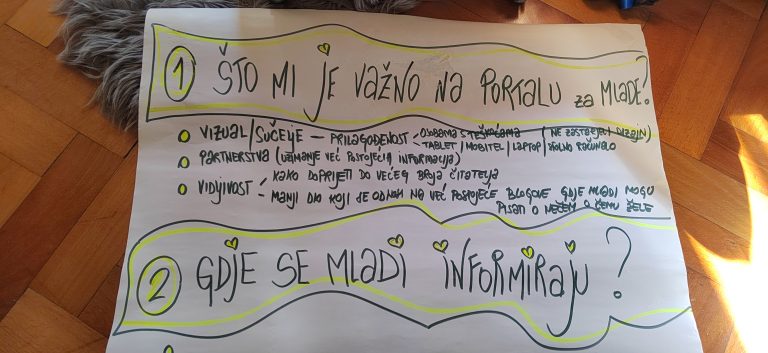 1 ŠTO MI JE VAŽNO NA PORTALU za MLADE?
VIZUAL/SUČELJE – PRILAGOĐENOST – OSOBAMA S TEŠKOĆAMA (NE ZASTARJELI DIZAJN)
– TABLET/MOBITEL/LAPTOP/STOLNO RAČUNALO
PARTNERSTVA (UZIMANJE VEĆ POSTOJEĆIH INFORMACIJA)
VIDLJIVOST – KAKO DOPRIJETI DO VEĆEG BROJA ČITATELJA
– MANJI DIO KOJI SE ODNOSI NA VEĆ POSTOJEĆE BLOGOVE GDJE MLADI MOGU
PISATI O NEČEM O ČEMU ŽELE
2 GDJE SE MLADI INFORMIRAJU?